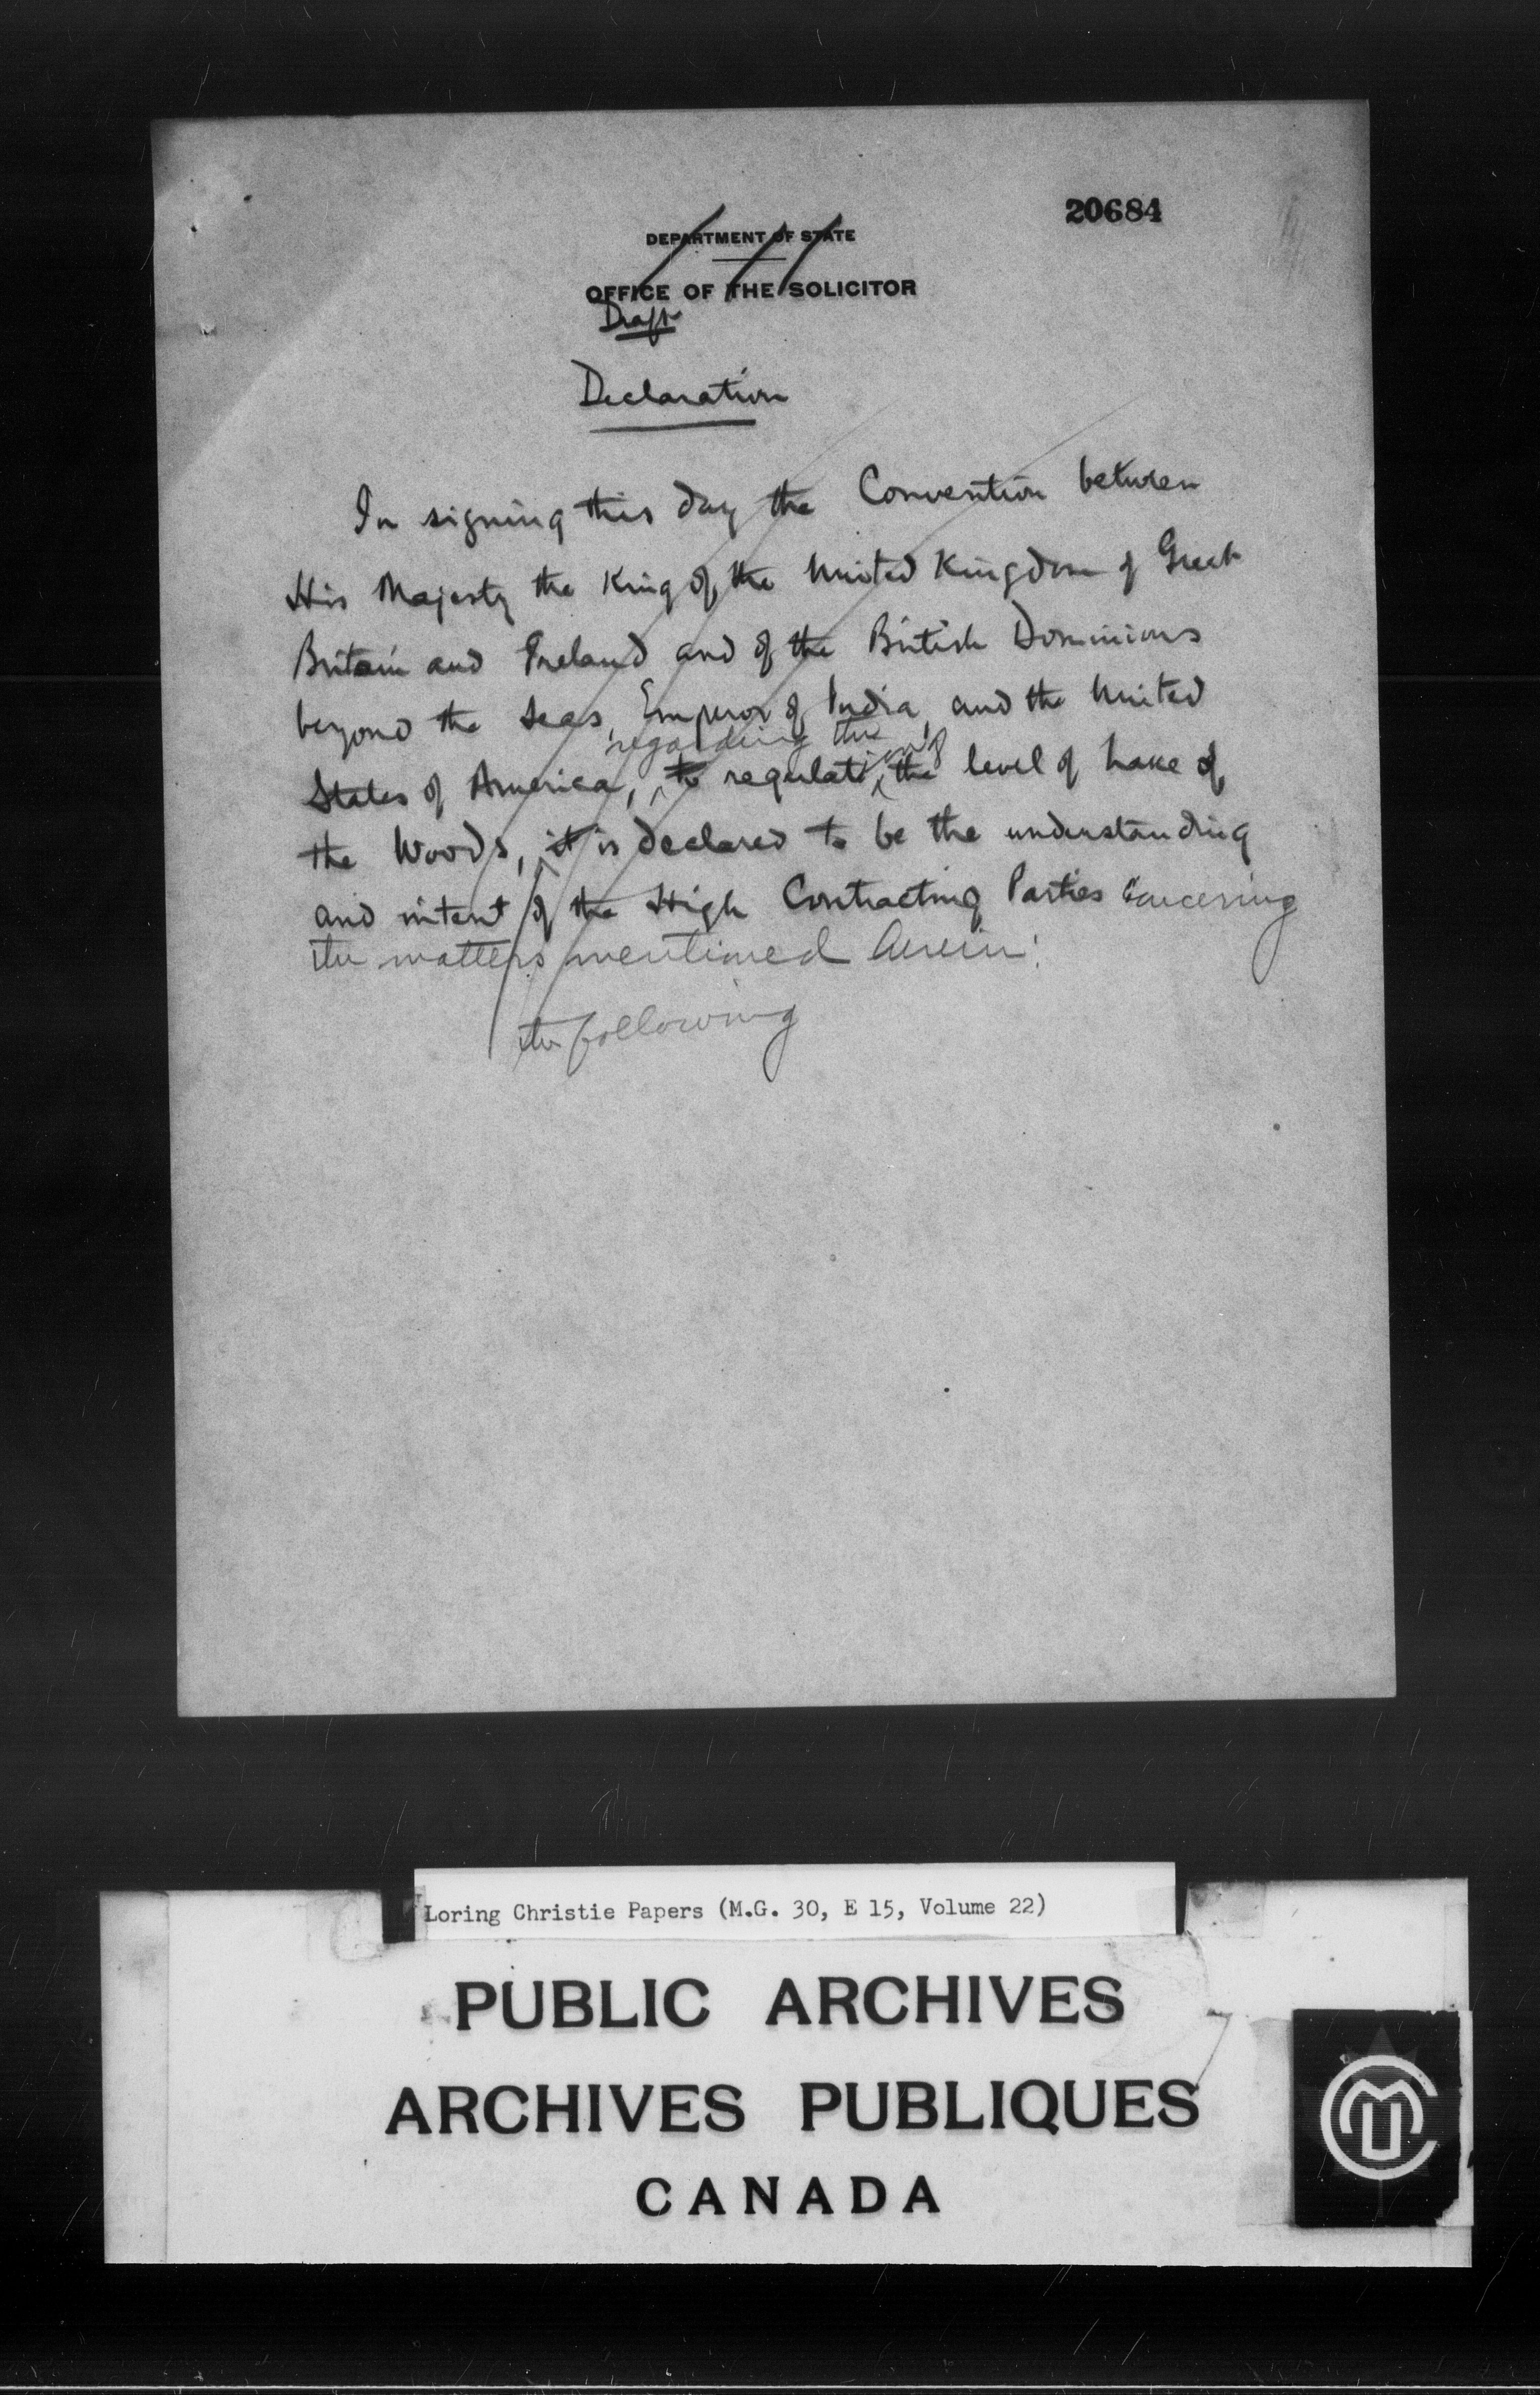 20684
DEPARTMENT OF STATE
OFFICE OF THE SOLICITOR
Draft
Declaration
In signing this day the Convention between
His Majesty the King of the United Kingdom of Great
Britain and Ireland and of the British Dominions
beyond the Seas, Emperor of India, and the United
regarding the on of
States of America, to regulati the level of Lake of
the Woods, it is declared to be the understanding
and intent of the High Contracting Parties concerning
the matters mentioned herein:
the following
Loring Christie Papers (M.G. 30, E 15, Volume 22)
PUBLIC ARCHIVES
ARCHIVES PUBLIQUES
CANADA